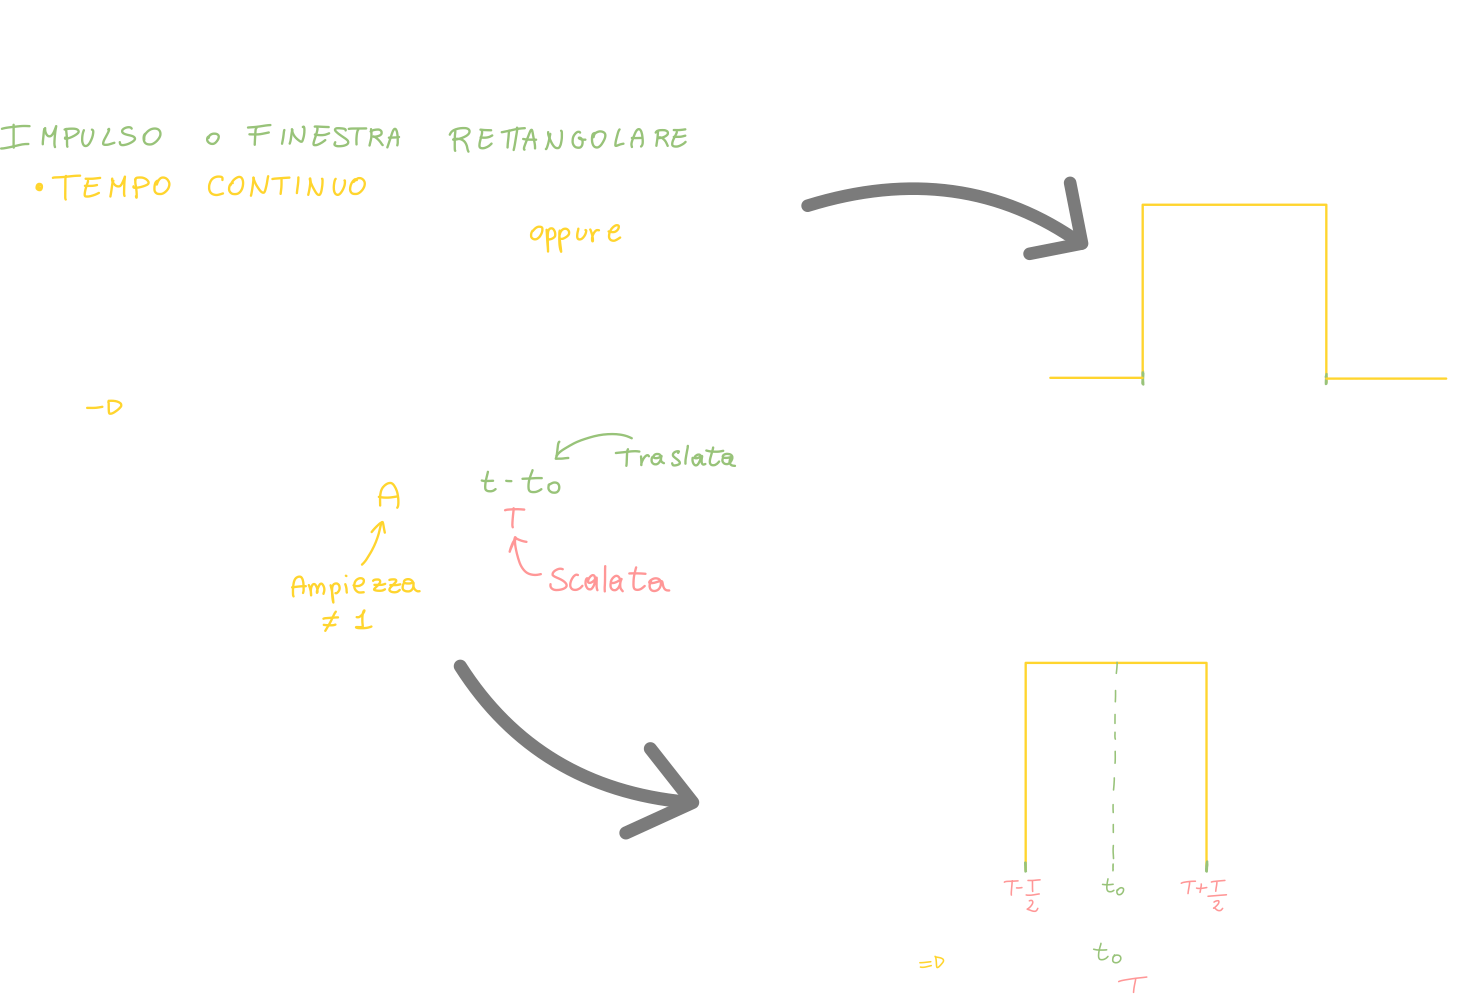 IMPULSO o FINESTRA RETTANGOLARE
• TEMPO CONTINUO
oppure
Traslata
t - t₀
A
T
Ampiezza
≠ 1
Scalata
T-T/2 t₀ T+T/2
t₀
T